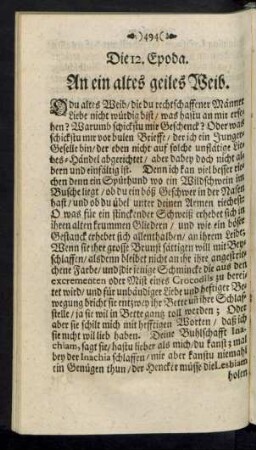 )494(
Die 12. Epoda.
An ein altes geiles Weib.
O du altes Weib/ die du rechtschaffener Männer
Liebe nicht würdig bist/ was hastu an mir erse-
hen? Warumb schickstu mir Geschenck? Oder was
schickstu mir vor bulen Brieffe/ der ich ein Junger
Geselle bin/ der eben nicht auf solche unflätige Lie-
bes-Händel abgerichtet/ aber dabey doch nicht al-
bern und einfältig ist. Denn ich kan viel besser rie-
chen denn ein Spürhund wo ein Wildschwein im
Busche liegt/ ob du ein böß Geschwer in der Nasen
hast/ und ob du übel unter deinen Armen riechest:
O was für ein stinckender Schweiß erhebet sich in
ihren alten krummen Gliedern/ und wie ein böser
Gestanck erhebet sich allenthalben/ an ihrem Leibe/
Wenn sie ihre grosse Brunst sättigen will mit Bey-
schlaffen/ alsdenn bleibet nicht an ihr ihre angestri-
chene Farbe/ und die jenige Schmincke die aus den
excrementen oder Mist eines Crocodils zu berei-
tet wird/ und für unbändiger Liebe und hefftiger Be-
wegung bricht sie entzwey ihr Bette und ihre Schlaff-
stelle/ ja sie wil in Bette gantz toll werden; Oder
aber sie schilt mich mit hefftigen Worten/ daß ich
sie nicht wil lieb haben. Deine Buhlschafft Ina-
chiam, sagt sie/ hastu lieber als mich/ du kanst 3 mal
bey der Inachia schlaffen/ mir aber kanstu niemahl
ein Genügen thun/ der Hencker müsse die Lesbiam
holen/